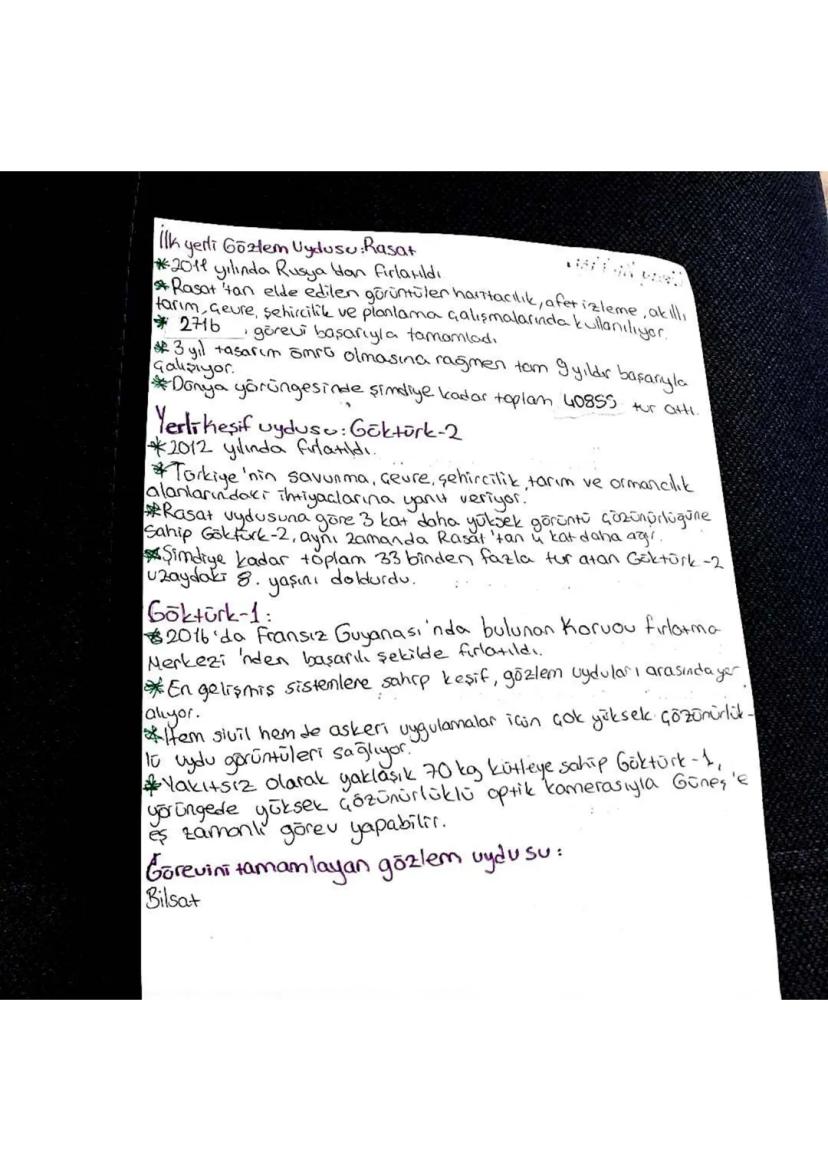 İlk yerli Gözlem Uydusu: Rasat
* 2011 yılında Rusya'dan fırlatıldı
* Rasat'tan elde edilen görüntüler haritacılık, afet izleme, akıllı
tarım, çevre, şehircilik ve planlama çalışmalarında kullanılıyor.
* 2716 görevi başarıyla tamamladı.
* 3 yıl tasarım ömrü olmasına rağmen tam 9 yıldır başarıyla
çalışıyor.
* Dünya yörüngesinde şimdiye kadar toplam 40855 tur attı.
Yerli keşif uydusu: Göktürk-2
* 2012 yılında fırlatıldı.
* Türkiye'nin savunma, çevre, şehircilik, tarım ve ormancılık
alanlarındaki ihtiyaçlarına yanıt veriyor.
* Rasat uydusuna göre 3 kat daha yüksek görüntü çözünürlüğüne
sahip Göktürk-2, aynı zamanda Rasat'tan 4 kat daha ağır.
* Şimdiye kadar toplam 33 binden fazla tur atan Göktürk-2
uzaydaki 8. yaşını doldurdu.
Göktürk-1:
* 2016'da Fransız Guyanası'nda bulunan Korvou fırlatma
Merkezi'nden başarılı şekilde fırlatıldı.
* En gelişmiş sistemlere sahip keşif, gözlem uyduları arasında yer
alıyor.
* Hem sivil hem de askeri uygulamalar için çok yüksek çözünürlük-
lü uydu görüntüleri sağlıyor.
* Yakıtsız olarak yaklaşık 70 kg kütleye sahip Göktürk-1,
yörüngede yüksek çözünürlüklü optik kamerasıyla Güneş'e
eş zamanlı görev yapabilir.
Görevini tamamlayan gözlem uydusu:
Bilsat